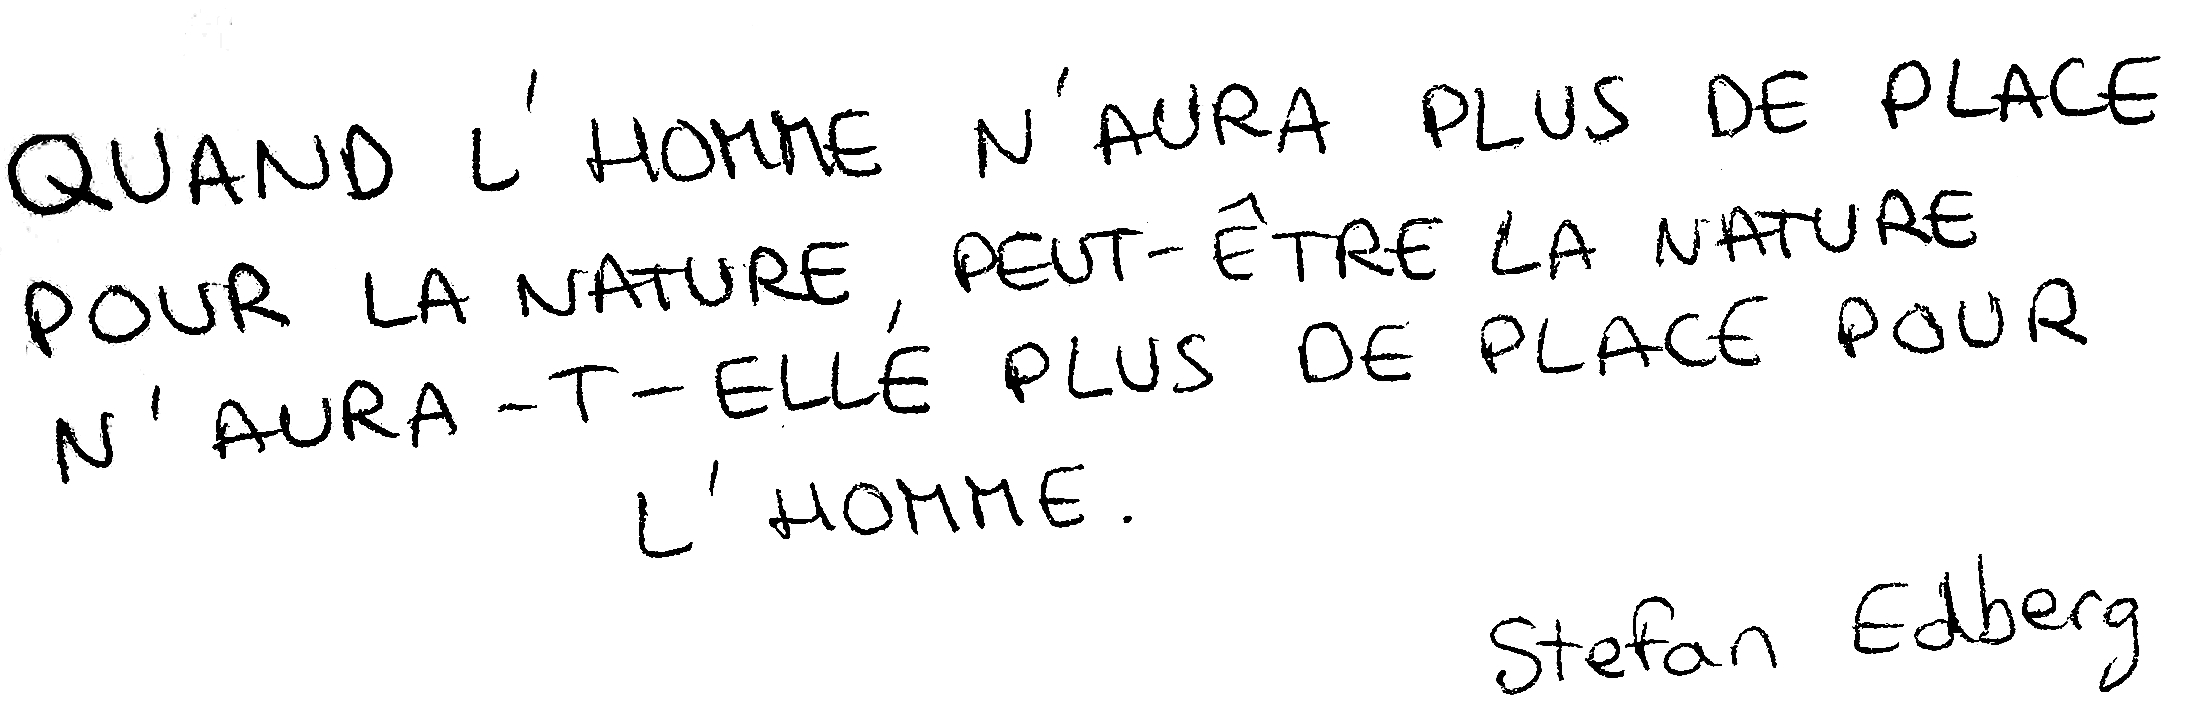 QUAND L'HOMME N'AURA PLUS DE PLACE
POUR LA NATURE, PEUT-ÊTRE LA NATURE
N'AURA-T-ELLE PLUS DE PLACE POUR
L'HOMME.
Stefan Edberg